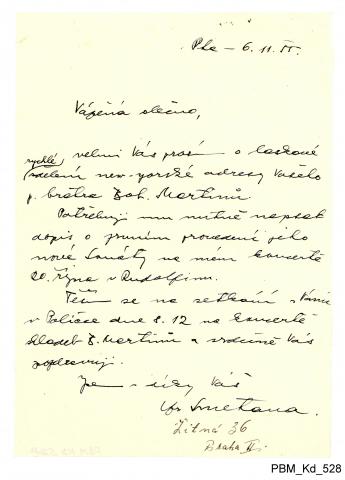 Pha – 6. 11. 55.
Vážená slečno,
velmi Vás prosím o laskavé
rychlé
sdělení new-yorské adresy Vašeho
p. bratra Boh. Martinů
Potřebuji mu nutně napsat
dopis o prvním provedení jeho
nové Sonáty na mém koncertě
20. října v Rudolfinu.
Těším se na setkání s Vámi
v Poličce dne 8. 12 na koncertě
skladeb B. Martinů a srdečně Vás
pozdravuji.
Jsem – díky Váš
Fr. Smetana.
Žitná 36
Praha II.
PBM_Kd_528